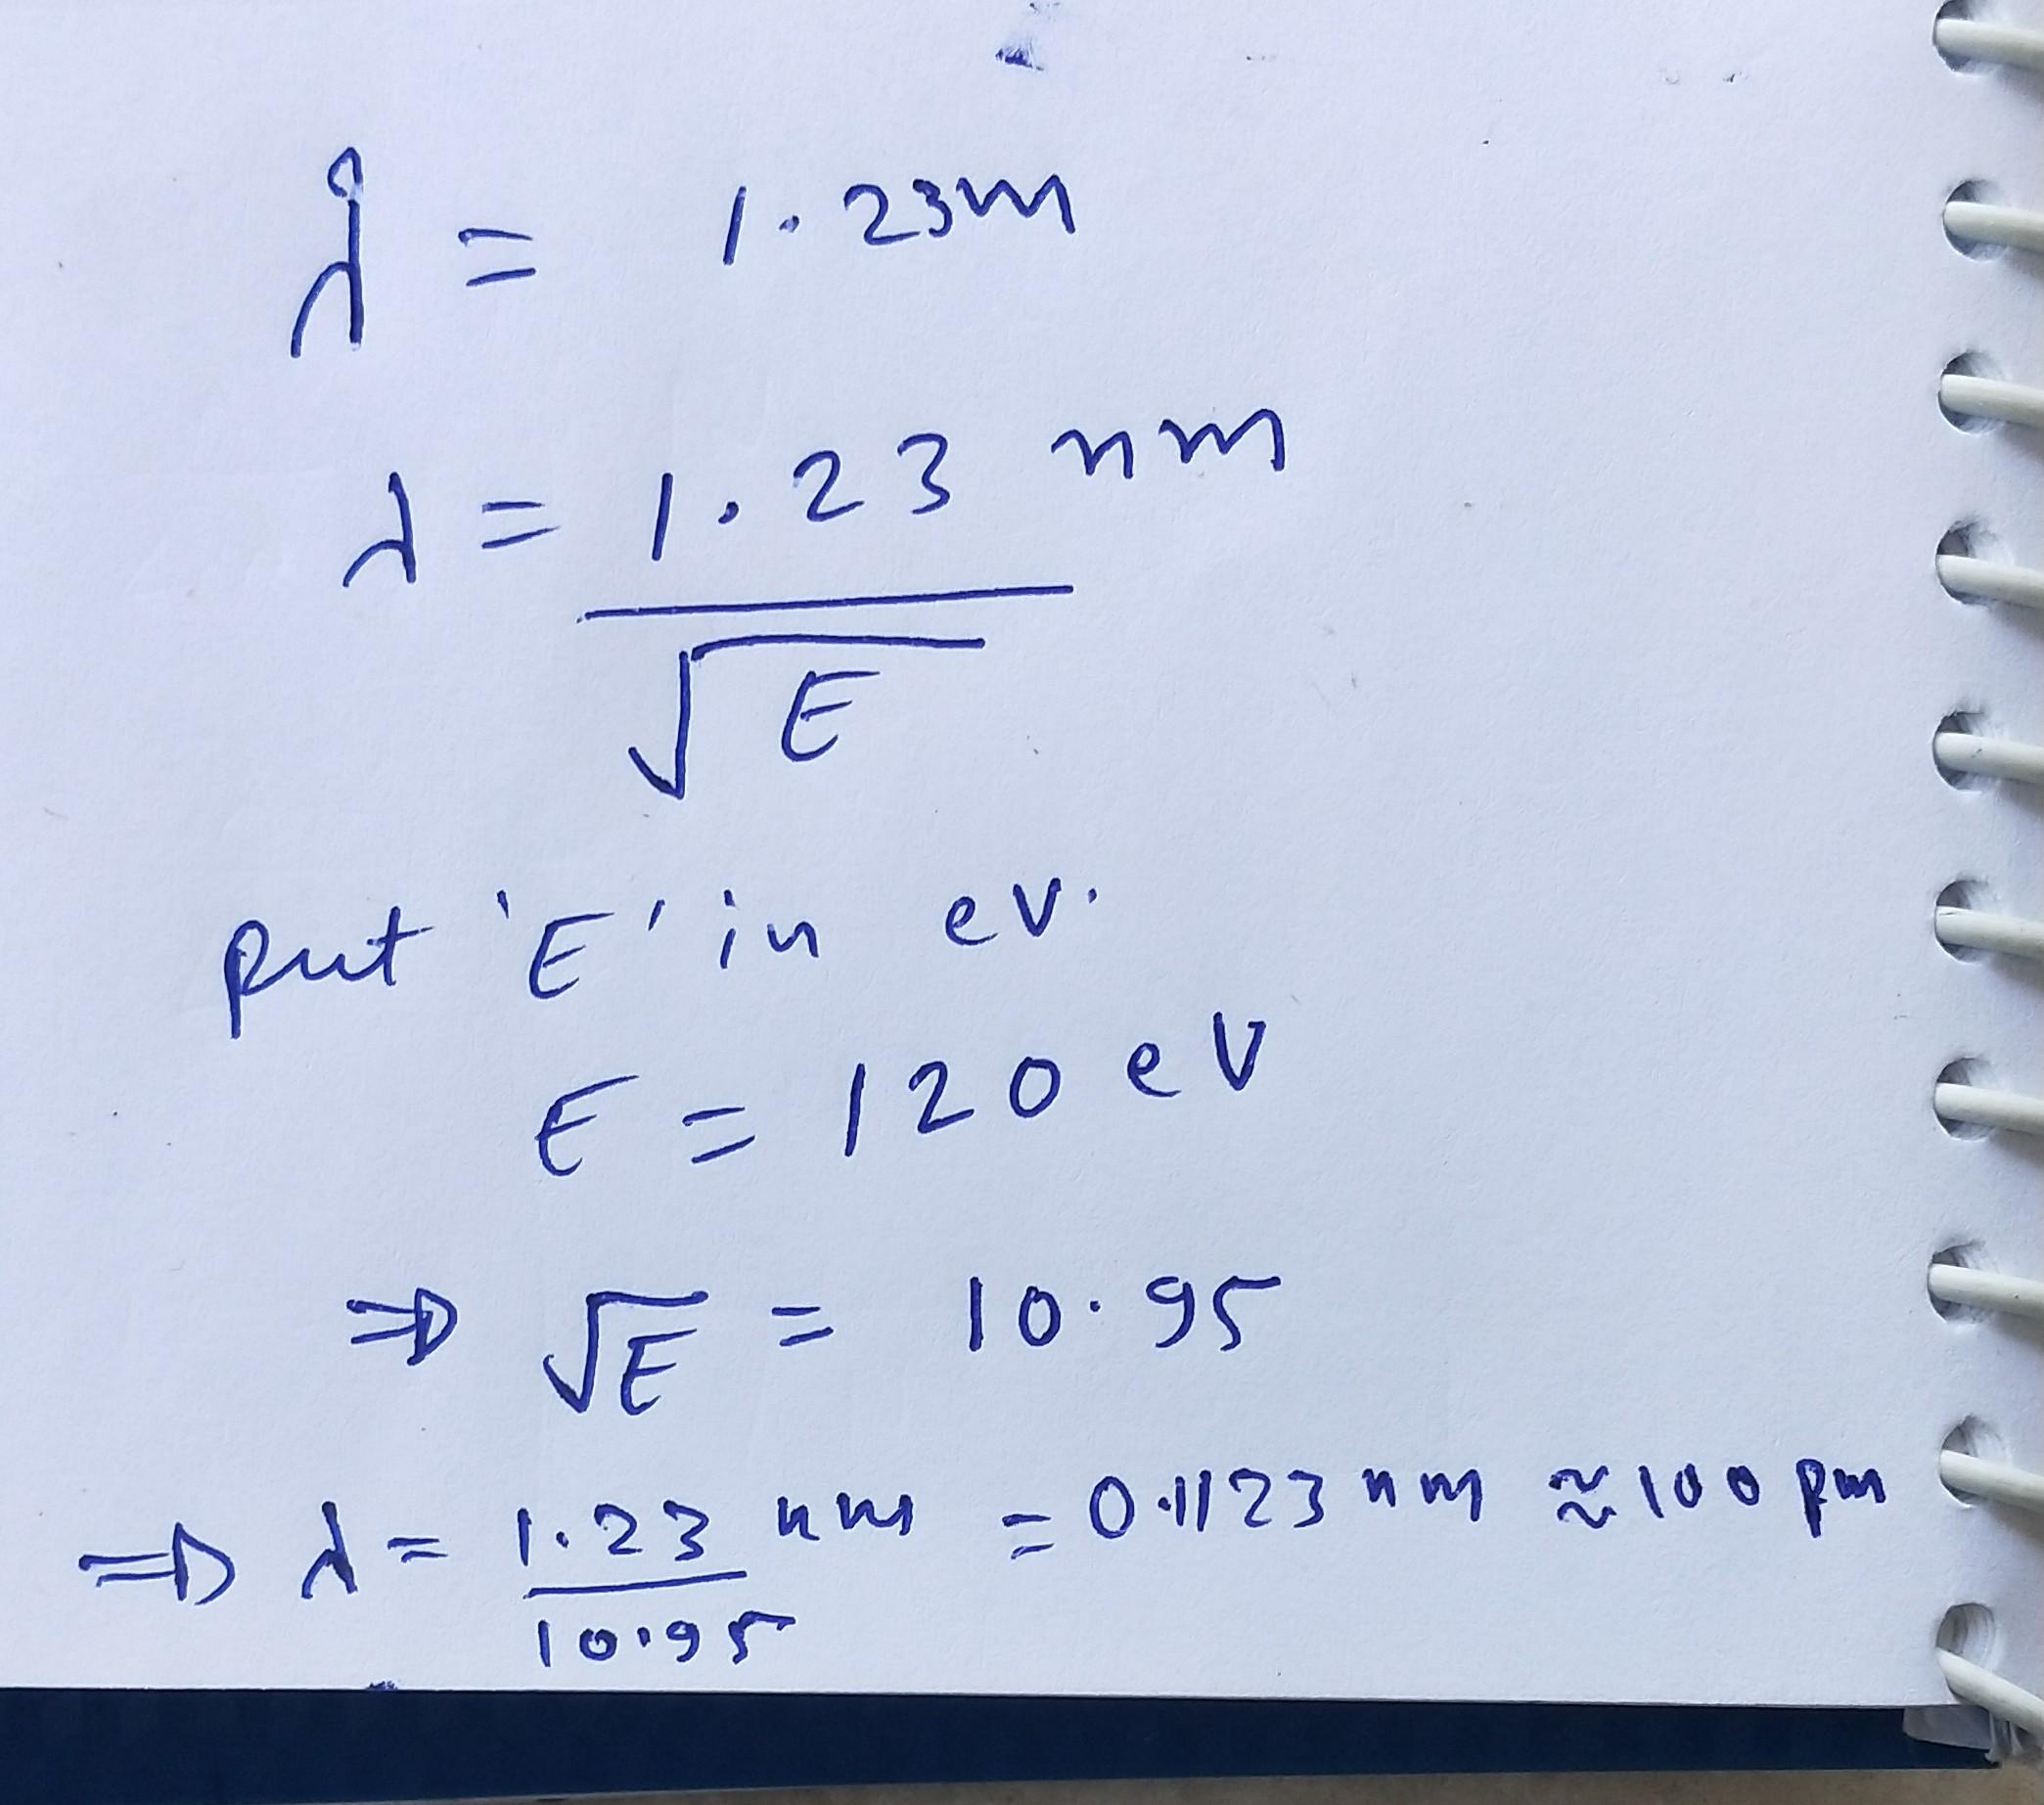 λ = 1.23m
λ = 1.23 nm
√E
put 'E' in ev.
E = 120 eV
⇒ √E = 10.95
⇒ λ = 1.23 nm = 0.1123 nm ≈ 100 pm
10.95